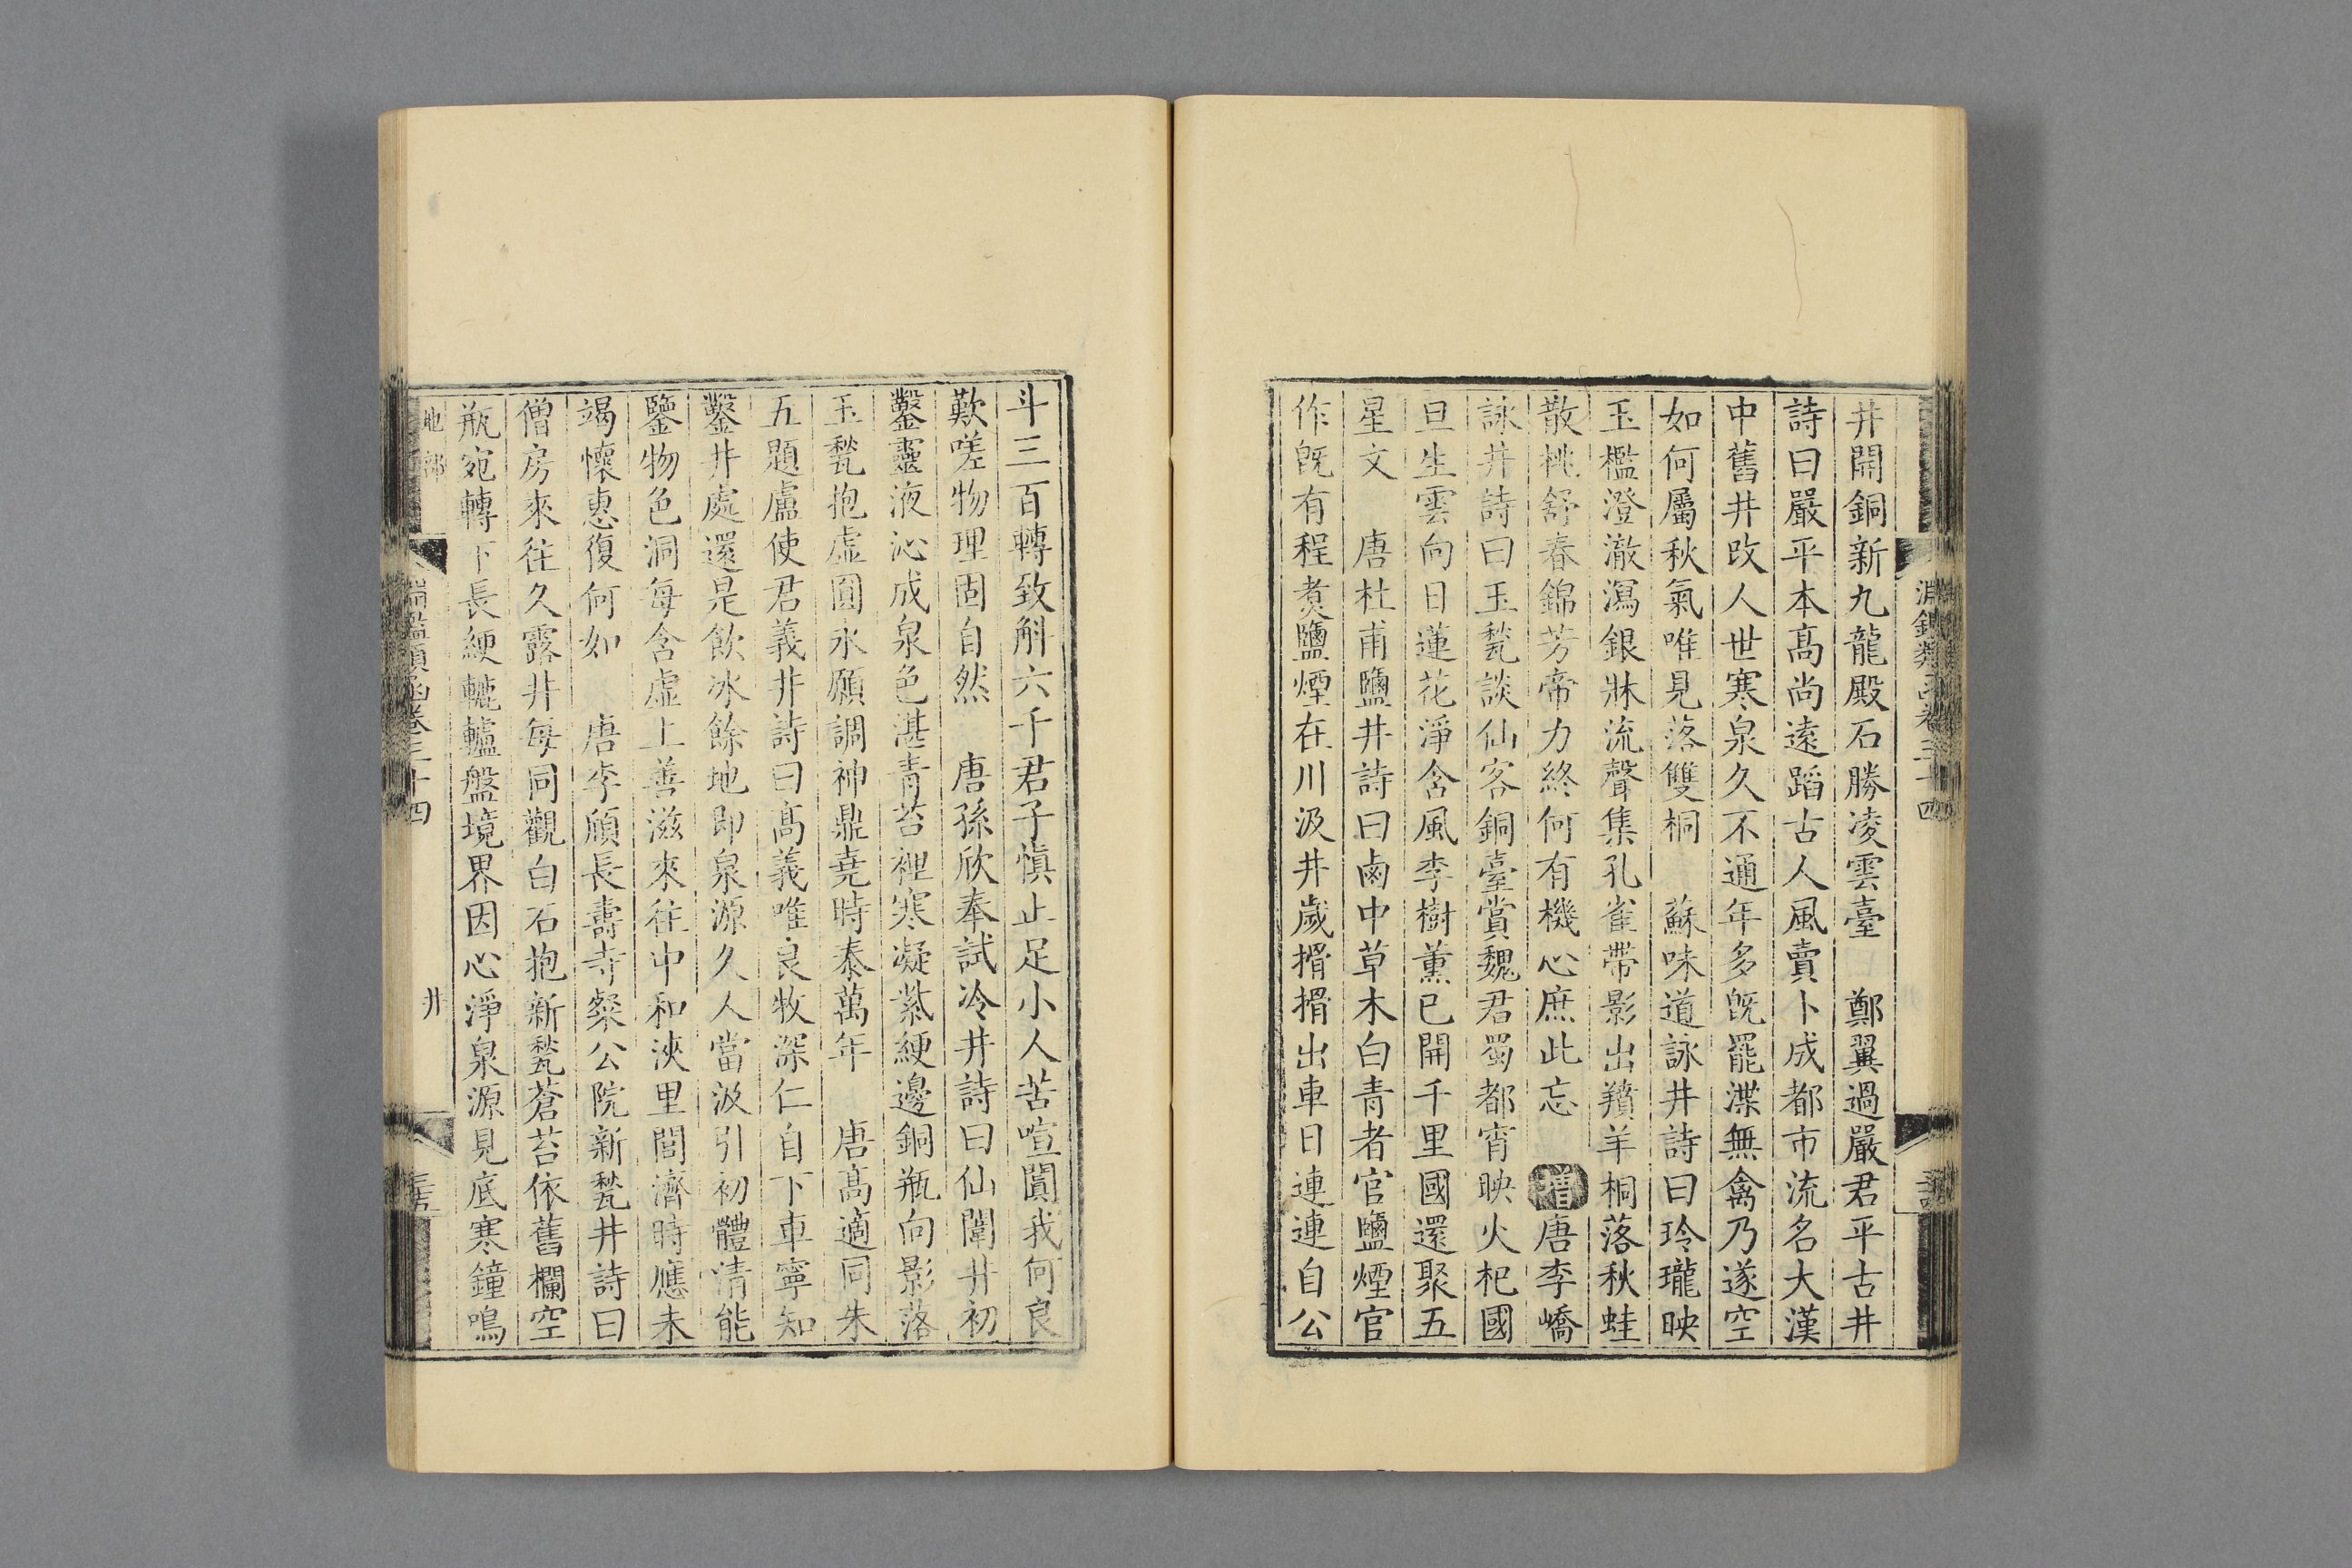 淵鑑類函卷三十四
井開銅新九龍殿石勝凌雲臺　鄭翼過嚴君平古井
詩曰嚴平本髙尚遠蹈古人風賣卜成都市流名大漢
中舊井改人世寒泉久不通年多旣罷渫無禽乃遂空
如何屬秋氣唯見落雙桐　蘇味道詠井詩曰玲瓏映
玉檻澄澈瀉銀牀流聲集孔雀帶影出羵羊桐落秋蛙
散桃舒春錦芳帝力終何有機心庶此忘　增唐李嶠
詠井詩曰玉甃談仙客銅臺賞魏君蜀都宵映火杞國
旦生雲向日蓮花淨含風李樹薰已開千里國還聚五
星文　唐杜甫鹽井詩曰鹵中草木白青者官鹽煙官
作旣有程煑鹽煙在川汲井歲搰搰出車日連連自公
斗三百轉致斛六千君子慎止足小人苦喧闐我何良
歎嗟物理固自然　唐孫欣奉試冷井詩曰仙闈井初
鑿靈液沁成泉色湛青苔裡寒凝紫綆邊銅瓶向影落
玉甃抱虛圓永願調神鼎堯時泰萬年　唐髙適同朱
五題盧使君義井詩曰髙義唯良牧深仁自下車寧知
鑿井處還是飲冰餘地即泉源久人當汲引初體清能
鑒物色洞每含虛上善滋來往中和浹里閭濟時應未
竭懷惠復何如　唐李頎長壽寺粲公院新甃井詩曰
僧房來往久露井每同觀白石抱新甃蒼苔依舊欄空
瓶宛轉下長綆轆轤盤境界因心淨泉源見底寒鐘鳴
地部　淵鑑類函卷三十四　井